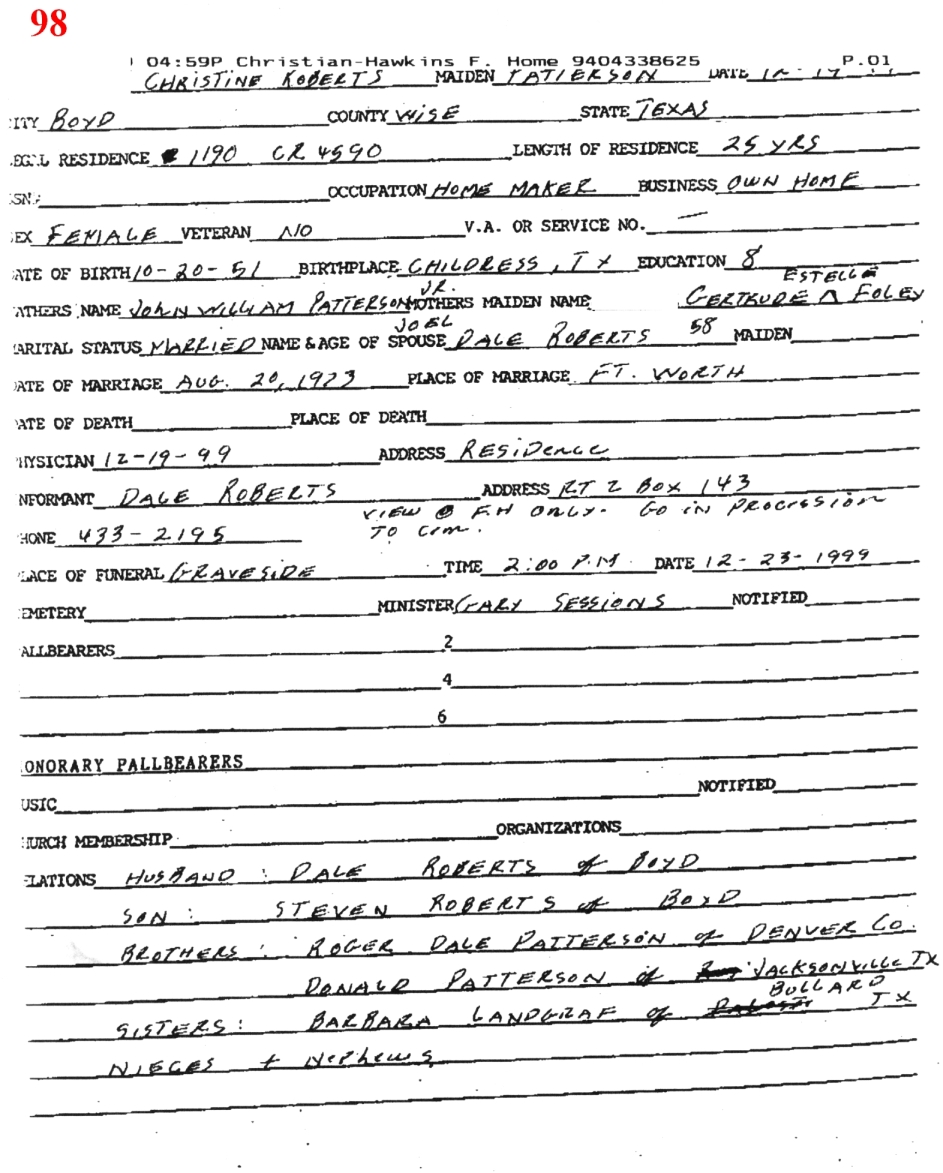 98
04:59P Christian-Hawkins F. Home 9404338625 P.01
CHRISTINE ROBERTS MAIDEN PATTERSON DATE
ITY BOYD COUNTY WISE STATE TEXAS
EGAL RESIDENCE 1190 CR 4590 LENGTH OF RESIDENCE 25 YRS
SN: OCCUPATION HOME MAKER BUSINESS OWN HOME
EX FEMALE VETERAN NO V.A. OR SERVICE NO. —
ATE OF BIRTH 10-20-51 BIRTHPLACE CHILDRESS, TX EDUCATION 8
JR. ESTELLE
ATHERS NAME JOHN WILLIAM PATTERSON MOTHERS MAIDEN NAME GERTRUDE ^ FOLEY
JOEL
ARITAL STATUS MARRIED NAME & AGE OF SPOUSE DALE ROBERTS 58 MAIDEN
ATE OF MARRIAGE AUG. 20, 1973 PLACE OF MARRIAGE FT. WORTH
ATE OF DEATH PLACE OF DEATH
HYSICIAN 12-19-99 ADDRESS RESIDENCE
NFORMANT DALE ROBERTS ADDRESS RT 2 BOX 143
VIEW @ F.H ONLY. GO IN PROCESSION
HONE 433-2195 TO CEM.
LACE OF FUNERAL GRAVESIDE TIME 2:00 P.M. DATE 12-23-1999
EMETERY MINISTER GARY SESSIONS NOTIFIED
ALLBEARERS 2
4
6
ONORARY PALLBEARERS
USIC NOTIFIED
HURCH MEMBERSHIP ORGANIZATIONS
ELATIONS HUSBAND: DALE ROBERTS of BOYD
SON: STEVEN ROBERTS of BOYD
BROTHERS: ROGER DALE PATTERSON of DENVER CO.
DONALD PATTERSON of JACKSONVILLE TX
BULLARD
SISTERS: BARBARA LANDGRAF of TX
NIECES + NEPHEWS